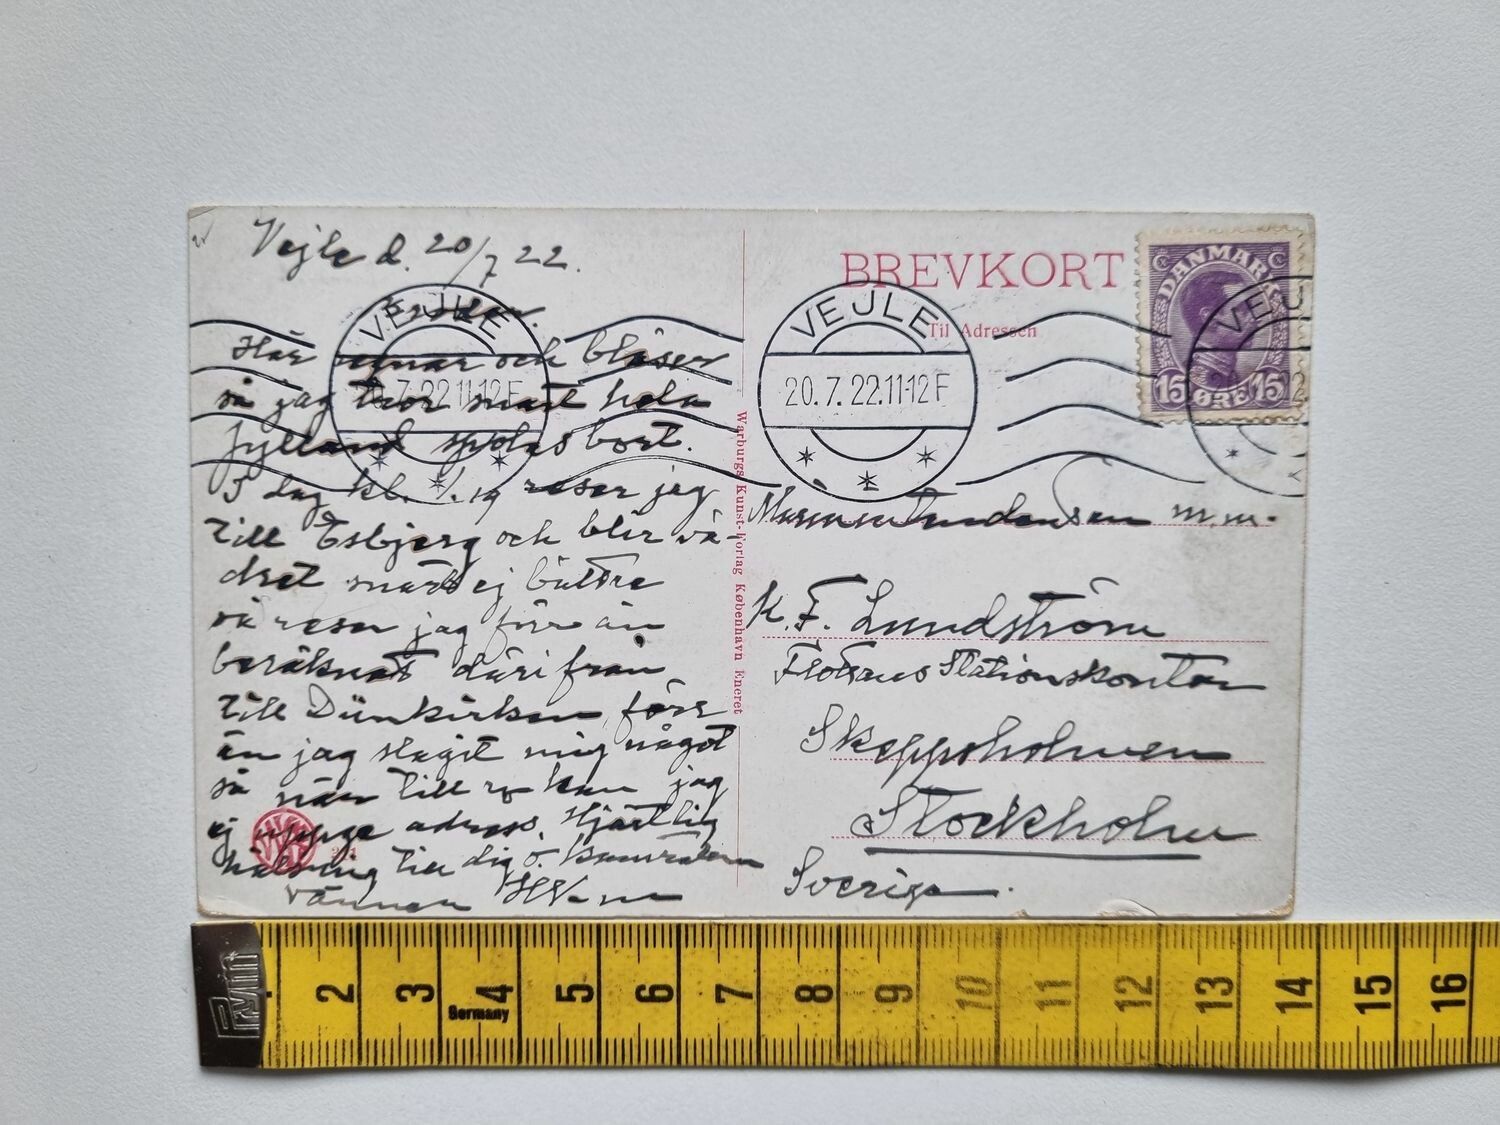 Vejle d. 20/7 22.
Broder.
Här regnar och blåser
så jag tror snart hela
Jylland spolas bort.
I dag kl. 1.19 reser jag
till Esbjerg och blir vä-
dret snart ej bättre
så reser jag förr än
beräknat därifrån
till Dünkirken, förr
än jag slagit mig något
så när till ro kan jag
ej uppge adress. Hjärtlig
hälsning till dig o. kamraterna
vännen
BREVKORT
Til Adressen
DANMARK
15 ØRE 15
VEJLE
20.7.22.11-12 F
VEJLE
20.7.22.11-12 F
VEJLE
Warburgs Kunst-Forlag København Eneret
m.m.
K. F. Lundström
Flottans Stationskontor
Skeppsholmen
Stockholm
Sverige.
2 3 4 5 6 7 8 9 10 11 12 13 14 15 16
Germany